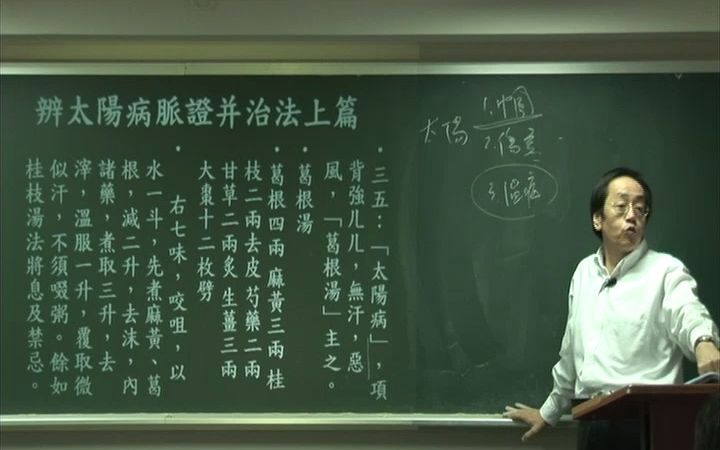 辨太陽病脈證并治法上篇
•三五：「太陽病」，項
背強儿儿，無汗，惡
風，「葛根湯」主之。
葛根湯
•葛根四兩 麻黃三兩 桂
枝二兩去皮 芍藥二兩
甘草二兩炙 生薑三兩
大棗十二枚劈
•右七味，咬咀，以
水一斗，先煮麻黃、葛
根，減二升，去沫，內
諸藥，煮取三升，去
滓，溫服一升，覆取微
似汗，不須啜粥。餘如
桂枝湯法將息及禁忌。
太陽
1.中風
2.傷寒
3.溫病